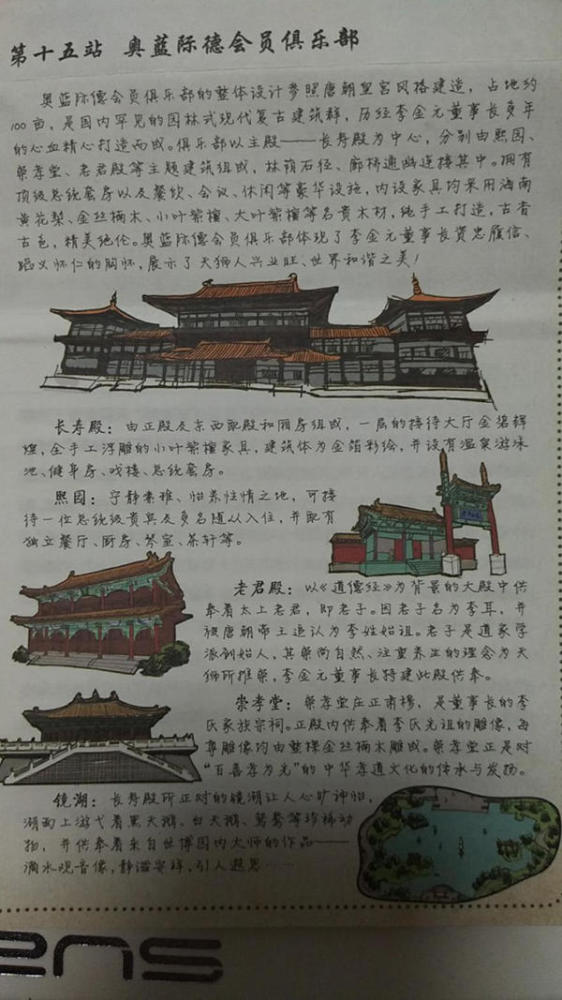 第十五站 奥蓝际德会员俱乐部
奥蓝际德会员俱乐部的整体设计参照唐朝皇宫风格建造，占地约
100亩，是国内罕见的园林式现代复古建筑群，历经李金元董事长多年
的心血精心打造而成。俱乐部以主殿——长寿殿为中心，分别由熙园、
崇孝堂、老君殿等主题建筑组成，林荫石径、廊桥通幽连接其中。拥有
顶级总统套房以及餐饮、会议、休闲等豪华设施，内设家具均采用海南
黄花梨、金丝楠木、小叶紫檀、大叶紫檀等名贵木材，纯手工打造，古香
古色，精美绝伦。奥蓝际德会员俱乐部体现了李金元董事长资忠履信、
蹈义怀仁的胸怀，展示了天狮人兴业旺、世界和谐之美！
长寿殿：由正殿及东西配殿和厢房组成，一层的接待大厅金碧辉
煌，全手工浮雕的小叶紫檀家具，建筑体为金箔彩绘，并设有温泉游泳
池、健身房、戏楼、总统套房。
熙园：宁静素雅、怡养性情之地，可接
待一位总统级贵宾及多名随从入住，并配有
独立餐厅、厨房、琴室、茶轩等。
老君殿：以《道德经》为背景的大殿中供
奉着太上老君，即老子。因老子名为李耳，并
被唐朝帝王追认为李姓始祖。老子是道家学
派创始人，其崇尚自然、注重养生的理念为天
狮所推崇，李金元董事长特建此殿供奉。
崇孝堂：崇孝堂在正南楼，是董事长的李
氏家族宗祠。正殿内供奉着李氏先祖的雕像，每
尊雕像均由整棵金丝楠木雕成。崇孝堂正是对
“百善孝为先”的中华孝道文化的传承与发扬。
镜湖：长寿殿所正对的镜湖让人心旷神怡，
湖面上游弋着黑天鹅、白天鹅、鸳鸯等珍稀动
物，并供奉着来自世博园内大师的作品——
滴水观音像，静谧安祥，引人遐思……